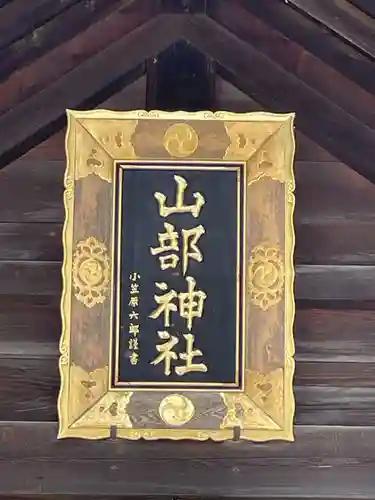 山部神社
小笠原六郎謹書